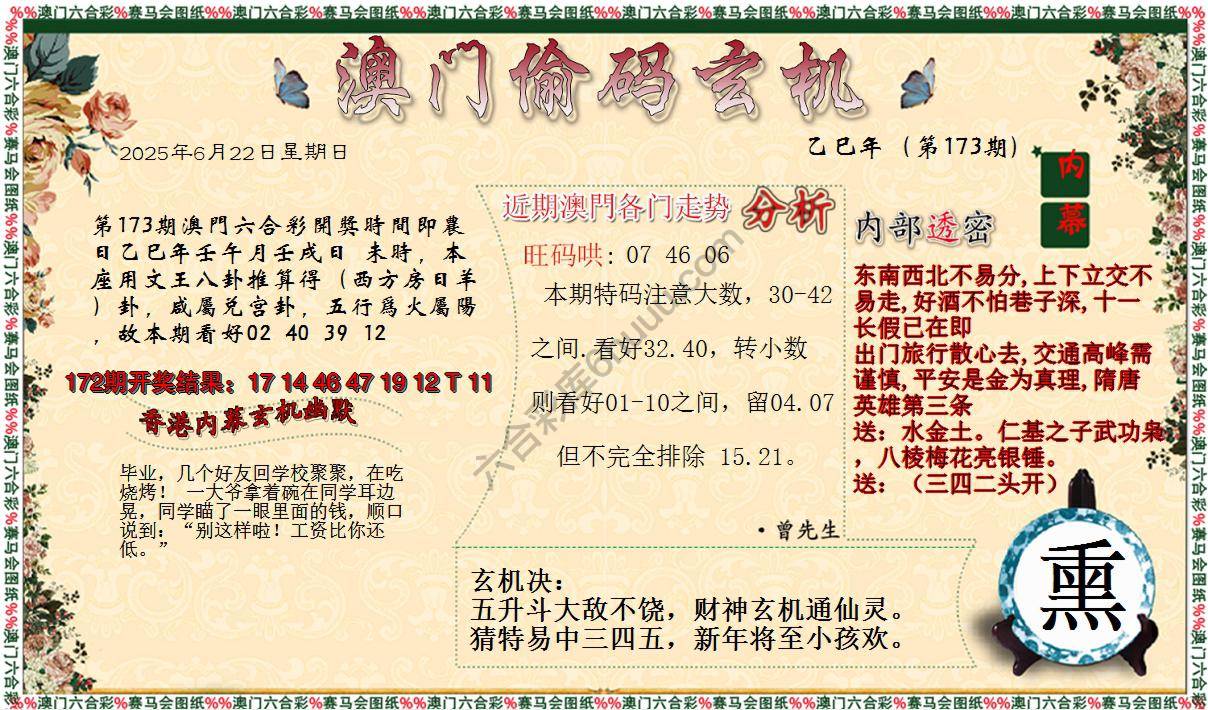 %%澳门六合彩%赛马会图纸%%澳门六合彩%赛马会图纸%%澳门六合彩%赛马会图纸%%澳门六合彩%赛马会图纸%%澳门六合彩%赛马会图纸%%澳门六合彩%赛马会图纸%%
澳门偷码玄机
2025年6月22日星期日
乙巳年 (第173期)
内
幕
第173期澳門六合彩開獎時間即農
日乙巳年壬午月壬戌日 未時，本
座用文王八卦推算得（西方房日羊
）卦，咸屬兑宫卦，五行爲火屬陽
，故本期看好02 40 39 12
172期开奖结果：17 14 46 47 19 12 T 11
香港内幕玄机幽默
毕业，几个好友回学校聚聚，在吃
烧烤！ 一大爷拿着碗在同学耳边
晃，同学瞄了一眼里面的钱，顺口
说到：“别这样啦！工资比你还
低。”
近期澳門各门走势 分析
旺码哄: 07 46 06
本期特码注意大数，30-42
之间.看好32.40，转小数
则看好01-10之间，留04.07
但不完全排除 15.21。
·曾先生
内部透密
东南西北不易分,上下立交不
易走,好酒不怕巷子深,十一
长假已在即
出门旅行散心去,交通高峰需
谨慎,平安是金为真理,隋唐
英雄第三条
送：水金土。仁基之子武功枭
，八棱梅花亮银锤。
送：（三四二头开）
玄机决：
五升斗大敌不饶，财神玄机通仙灵。
猜特易中三四五，新年将至小孩欢。
熏
%%澳门六合彩%赛马会图纸%%澳门六合彩%赛马会图纸%%澳门六合彩%赛马会图纸%%澳门六合彩%赛马会图纸%%澳门六合彩%赛马会图纸%%澳门六合彩%赛马会图纸%%